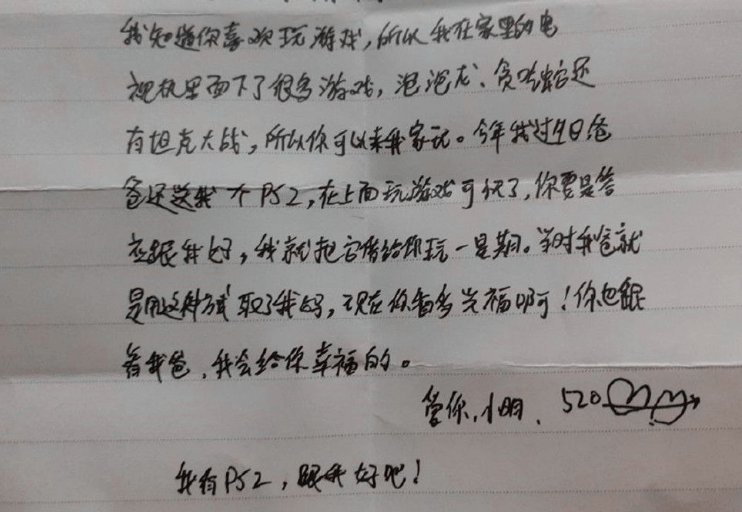 我知道你喜欢玩游戏，所以我在家里的电
视机里面下了很多游戏，泡泡龙、贪吃蛇还
有坦克大战，所以你可以来我家玩。今年我过生日爸
爸还送我一个PS2，在上面玩游戏可
了，你要是答
应跟我好，我就把它借给你玩一星期。当时我爸就
是用这种方式取了我妈，现在你看多幸福啊！你也跟
着我爸，我会给你幸福的。
爱你，小明、520
我有PS2，跟我好吧！